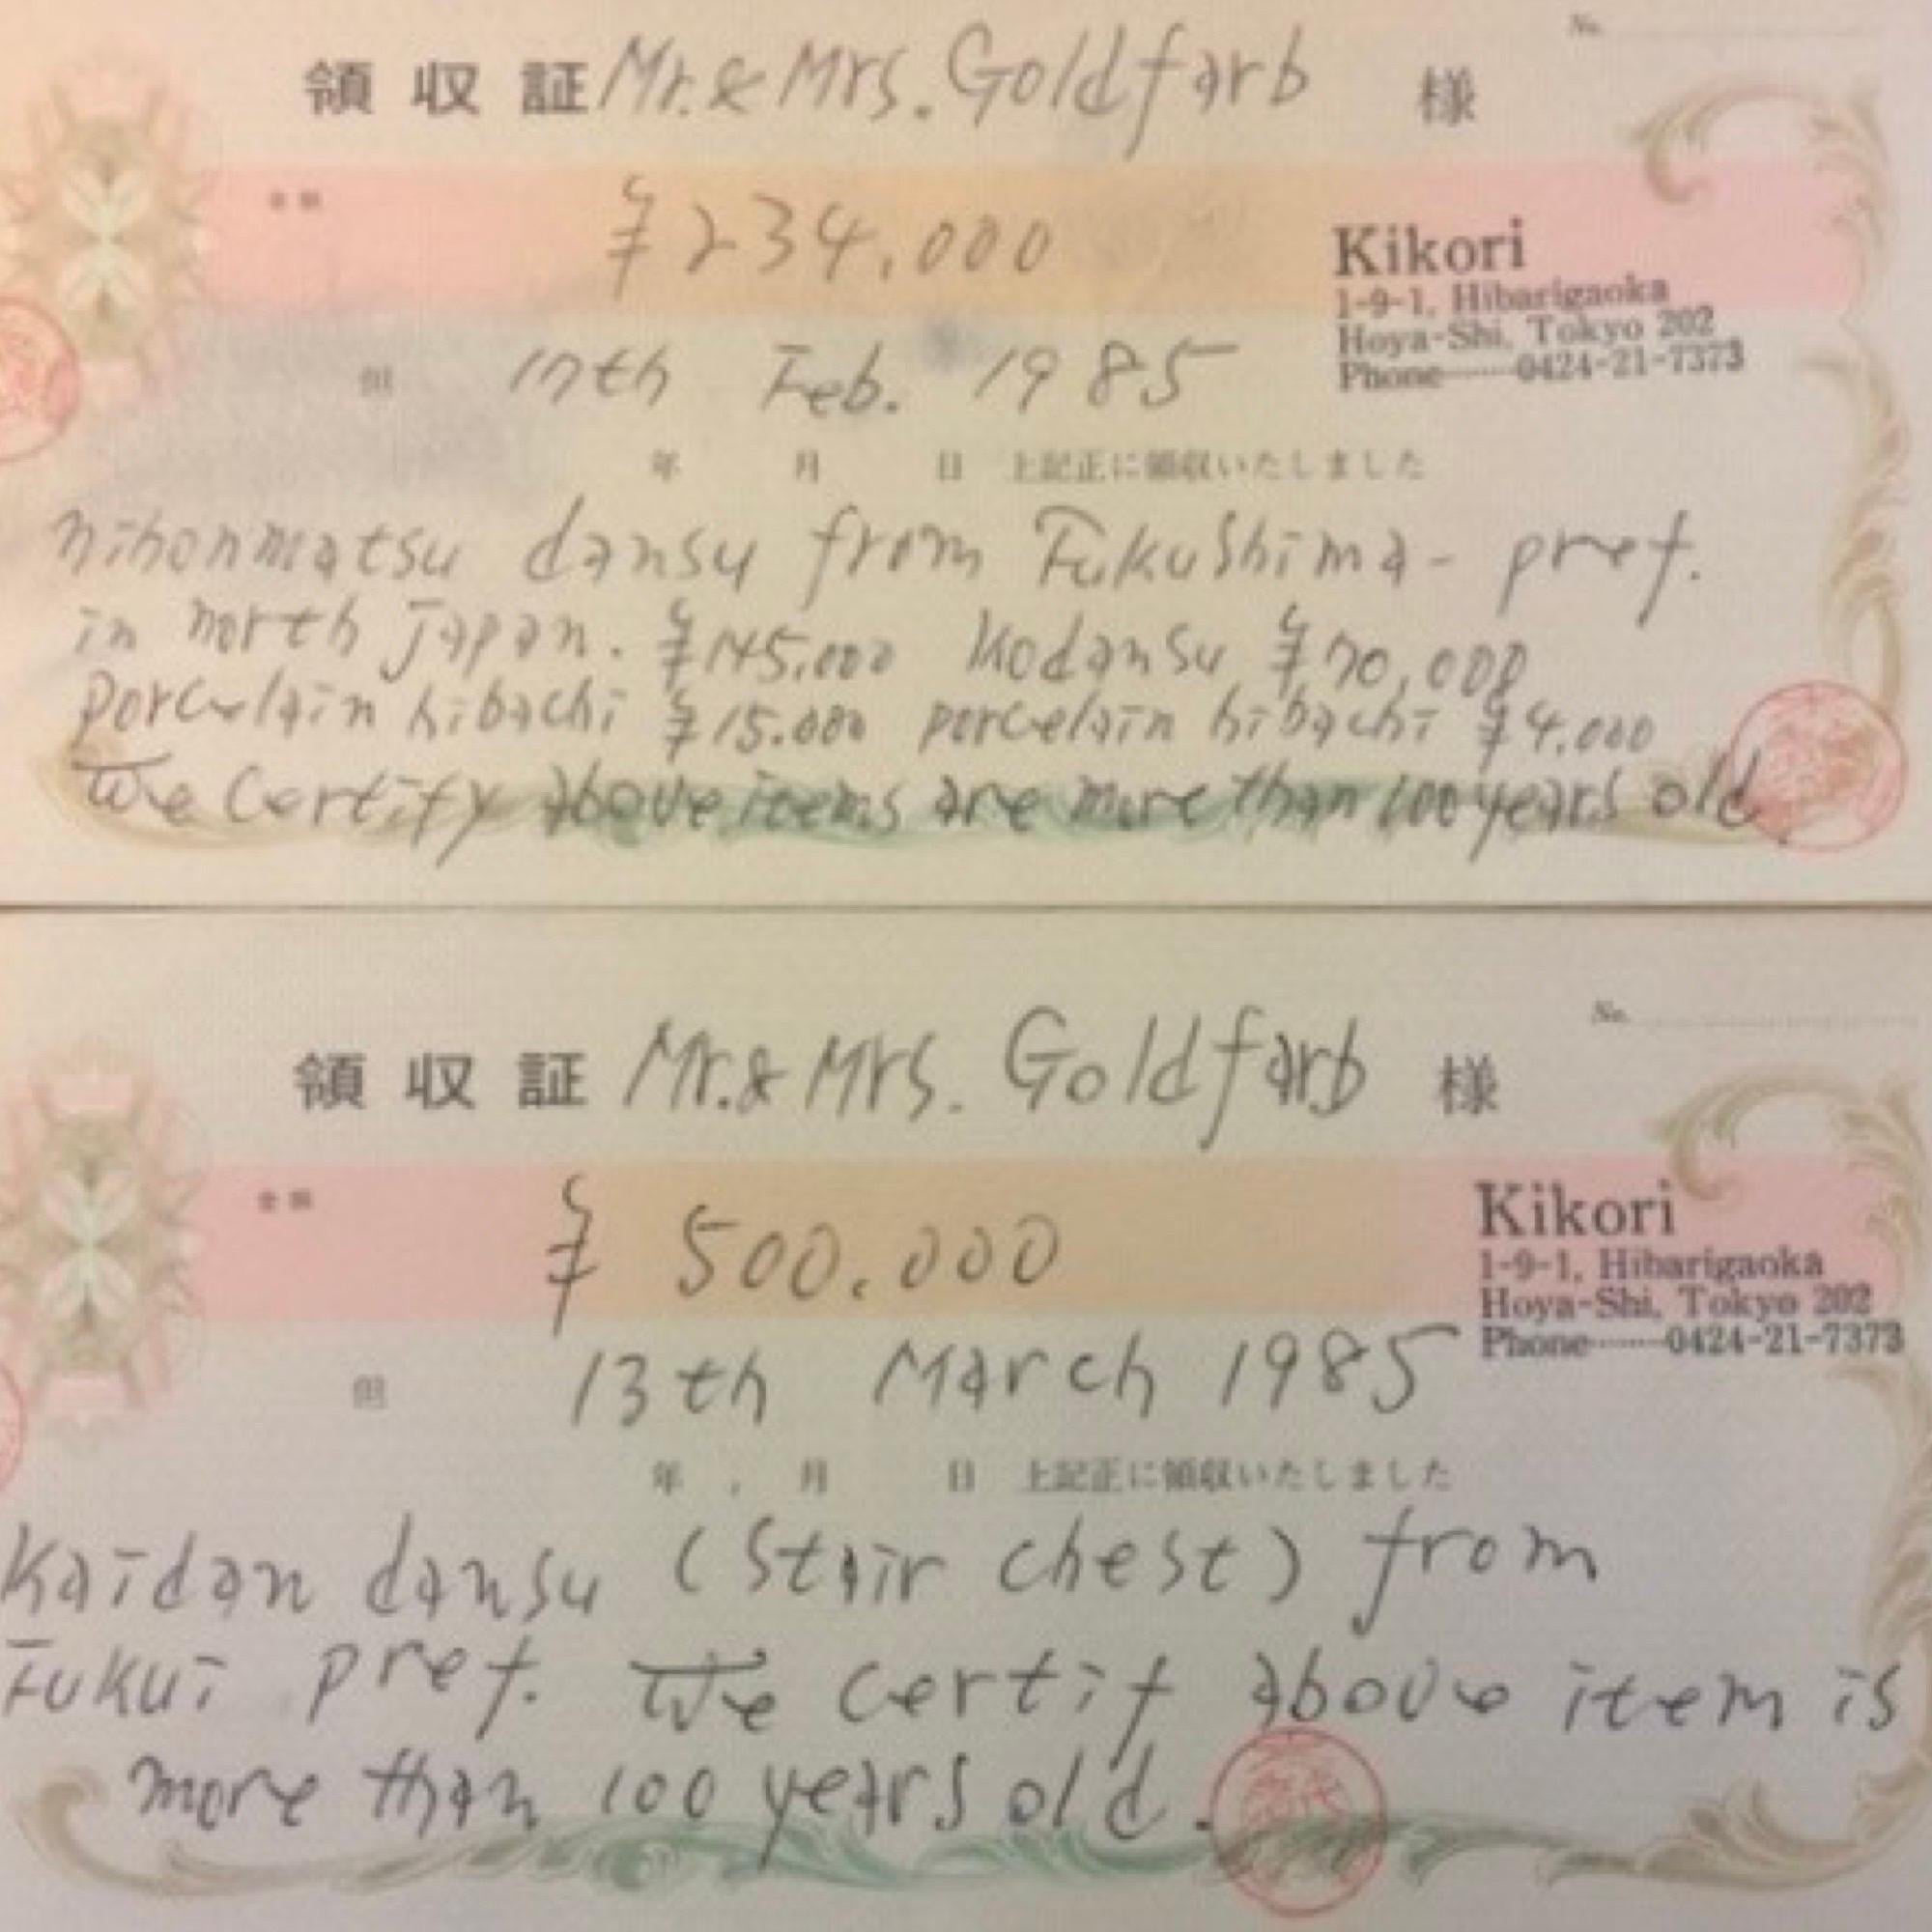 No.
領収証 Mr. & Mrs. Goldfarb 様
金額
¥234,000
Kikori
1-9-1, Hibarigaoka
Hoya-Shi, Tokyo 202
Phone……0424-21-7373
但 17th Feb. 1985
年 月 日 上記正に領収いたしました
nihonmatsu dansu from Fukushima- pref.
in north Japan. ¥145,000 Kodansu ¥70,000
porcelain hibachi ¥15.000 porcelain hibachi ¥4,000
We Certify above items are more than 100 years old
No.
領収証 Mr. & Mrs. Goldfarb 様
金額
¥ 500.000
Kikori
1-9-1, Hibarigaoka
Hoya-Shi, Tokyo 202
Phone……0424-21-7373
但 13th March 1985
年 月 日 上記正に領収いたしました
Kaidan dansu (Stair chest) from
Fukui pref. We certif above item is
more than 100 years old.